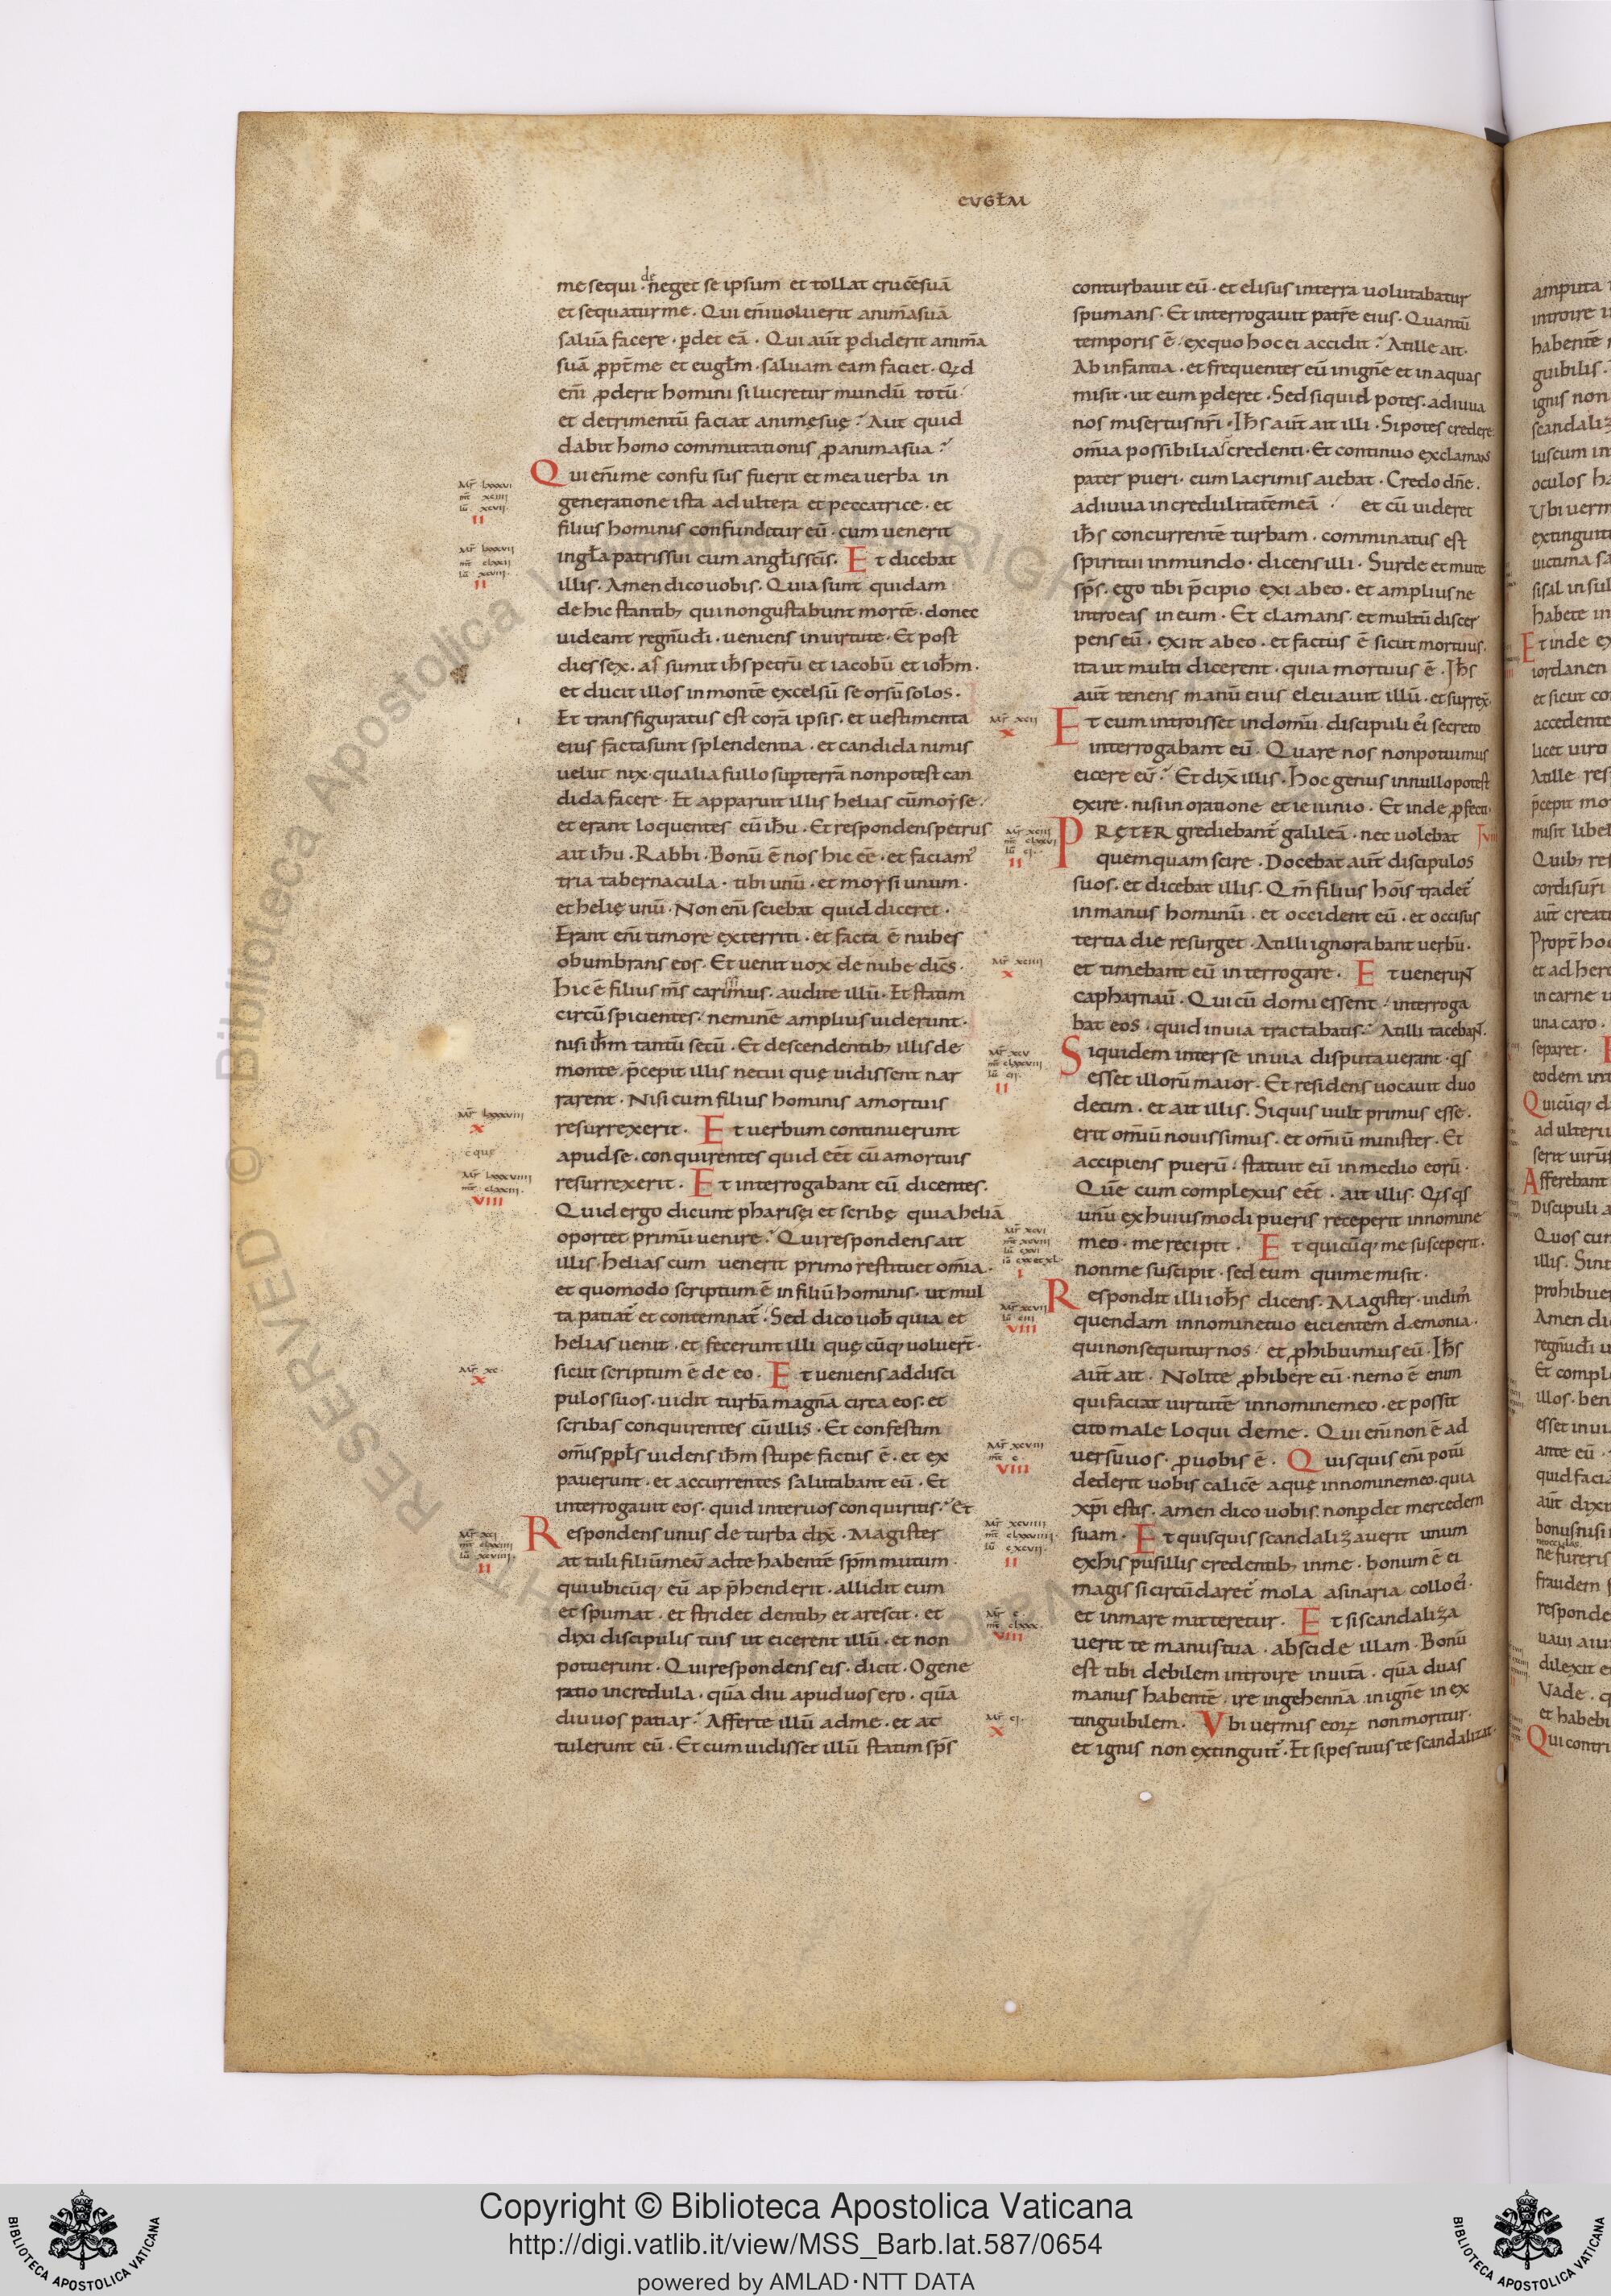 EVGŁM
me sequi · deneget se ipsum et tollat crucēsuā
et sequaturme. Qui eñi uoluerit animāsuā
saluā facere · ꝑdet eā . Qui aūt ꝑdiderit animā
suā ꝓpt̄me et eugłm · saluam eam faciet. Qd
eñi ꝓderit homini si lucretur mundū totū
et detrimentū faciat animęsuę? Aut quid
dabit homo commutationis ꝓ anima sua?
Qui eñi me confusus fuerit et mea uerba in
generatione ista adultera et peccatrice · et
filius hominis confundetur eū · cum uenerit
in głapatris sui cum angłis scīs. Et dicebat
illis. Amen dico uobis. Quia sunt quidam
de hic stantib; qui non gustabunt mortē · donec
uideant regnūdī · ueniens in uirtute · Et post
dies sex · assumit ihs petrū et iacobū et iohm ·
et ducit illos in montē excelsū seorsū solos ·
Et transfiguratus est corā ipsis · et uestimenta
eius facta sunt splendentia · et candida nimis
uelut nix · qualia fullo suꝑ terrā non potest can
dida facere · Et apparuit illis helias cū moyse ·
et erant loquentes cū ihu · Et respondens petrus
ait ihu · Rabbi · Bonū ē nos hic eē · et faciam᾽
tria tabernacula · tibi unū · et moysi unum ·
et helię unū · Non eñi sciebat quid diceret ·
Erant eñi timore exterriti · et facta ē nubes
obumbrans eos · Et uenit uox de nube dicēs ·
hic ē filius m̄s carimus · audite illū · Et statim
circūspicientes · neminē amplius uiderunt ·
nisi ihm tantū secū · Et descendentib; illis de
monte · p̄cepit illis ne cui quę uidissent nar
rarent · Nisi cum filius hominis a mortuis
resurrexerit · Et uerbum continuerunt
apud se · conquirentes quid eēt cū a mortuis
resurrexerit · Et interrogabant eū dicentes ·
Quid ergo dicunt pharisęi et scribę quia heliā
oportet primū uenire? Qui respondens ait
illis · helias cum uenerit primo restituet om̄ia ·
et quomodo scriptum ē in filiū hominis · ut mul
ta patiat̄ et contemnat̄ · Sed dico uob̄ quia et
helias uenit · et fecerunt illi quęcūq; uoluer̄t ·
sicut scriptum ē de eo · Et ueniens ad disci
pulos suos · uidit turbā magnā circa eos · et
scribas conquirentes cū illis · Et confestim
om̄is ppłs uidens ihm stupefactus ē · et ex
pauerunt · et accurrentes salutabant eū · Et
interrogauit eos · quid inter uos conquiritis? Et
Respondens unus de turba dix̄ · Magister
attuli filiū meū ad te habentē sp̄m mutum ·
qui ubicūq; eū app̄henderit · allidit eum
et spumat · et stridet dentib; et arescit · et
dixi discipulis tuis ut eicerent illū · et non
potuerunt · Qui respondens eis · dicit · O gene
ratio incredula · quādiu apud uos ero · quā
diu uos patiar? Afferte illū ad me · et at
tulerunt eū · Et cum uidisset illū statim sp̄s
conturbauit eū · et elisus in terra uolutabatur
spumans · Et interrogauit patrē eius · Quantū
temporis ē · ex quo hoc ei accidit? At ille ait ·
Ab infantia · et frequenter eū in ignē et in aquas
misit · ut eum ꝑderet · Sed si quid potes · adiuua
nos misertus nr̄i · Ihs aūt ait illi · Si potes credere
om̄ia possibilia s̄ credenti · Et continuo exclamans
pater pueri · cum lacrimis aiebat · Credo dn̄e ·
adiuua incredulitatē meā · et cū uideret
ihs concurrentē turbam · comminatus est
spiritui inmundo · dicens illi · Surde et mute
sp̄s · ego tibi p̄cipio exi ab eo · et amplius ne
introeas in eum · Et clamans · et multū discer
pens eū · exiit ab eo · et factus ē sicut mortuus ·
ita ut multi dicerent · quia mortuus ē · Ihs
aūt tenens manū eius eleuauit illū · et surrex̄
Et cum introisset in domū · discipuli ei᾽ secreto
interrogabant eū · Quare nos non potuimus
eicere eū? Et dix̄ illis · Hoc genus in nullo potest
exire · nisi in oratione et ieiunio · Et inde ꝓfecti ·
PRĘTERgrediebant̄ galileā · nec uolebat
quemquam scire · Docebat aūt discipulos
suos · et dicebat illis · Qm̄ filius hoīs tradet̄
in manus hominū · et occident eū · et occisus
tertia die resurget · At illi ignorabant uerbū ·
et timebant eū interrogare · Et ueneruN̄
capharnaū · Qui cū domi essent · interroga
bat eos · quid in uia tractabatis? At illi tacebaN̄ ·
Siquidem inter se in uia disputauerant · qs
esset illorū maior · Et residens uocauit duo
decim · et ait illis · Siquis uult primus esse ·
erit om̄iū nouissimus · et om̄iū minister · Et
accipiens puerū · statuit eū in medio eorū ·
Quē cum complexus eēt · ait illis · Qsqs
unū ex huiusmodi pueris receperit in nomine
meo · me recipit · Et quicūq; me susceperit ·
non me suscipit · sed eum qui me misit ·
Respondit illi iohs dicens · Magister · uidim᾽
quendam in nomine tuo eicientem dæmonia ·
qui non sequitur nos · et ꝓhibuimus eū · Ihs
aūt ait · Nolite ꝓhibere eū · nemo ē enim
qui faciat uirtutē in nomine meo · et possit
cito male loqui de me · Qui eñi non ē ad
uersū uos · ꝓ uobis ē · Quisquis eñi potū
dederit uobis calicē aquę in nomine meo · quia
xp̄i estis · amen dico uobis · non ꝑdet mercedem
suam · Et quisquis scandalizauerit unum
ex his pusillis credentib; in me · bonum ē ei
magis si circūdaret̄ mola asinaria collo ei᾽ ·
et in mare mitteretur · Et si scandaliza
uerit te manus tua · abscide illam · Bonū
est tibi debilem introire in uitā · quā duas
manus habentē · ire in gehennā in ignē inex
tinguibilem · Vbi uermis eoꝝ non moritur ·
et ignis non extinguit̄ · Et si pes tuus te scandalizat ·
Copyright © Biblioteca Apostolica Vaticana
http://digi.vatlib.it/view/MSS_Barb.lat.587/0654
powered by AMLAD·NTT DATA
BIBLIOTECA APOSTOLICA VATICANA
BIBLIOTECA APOSTOLICA VATICANA